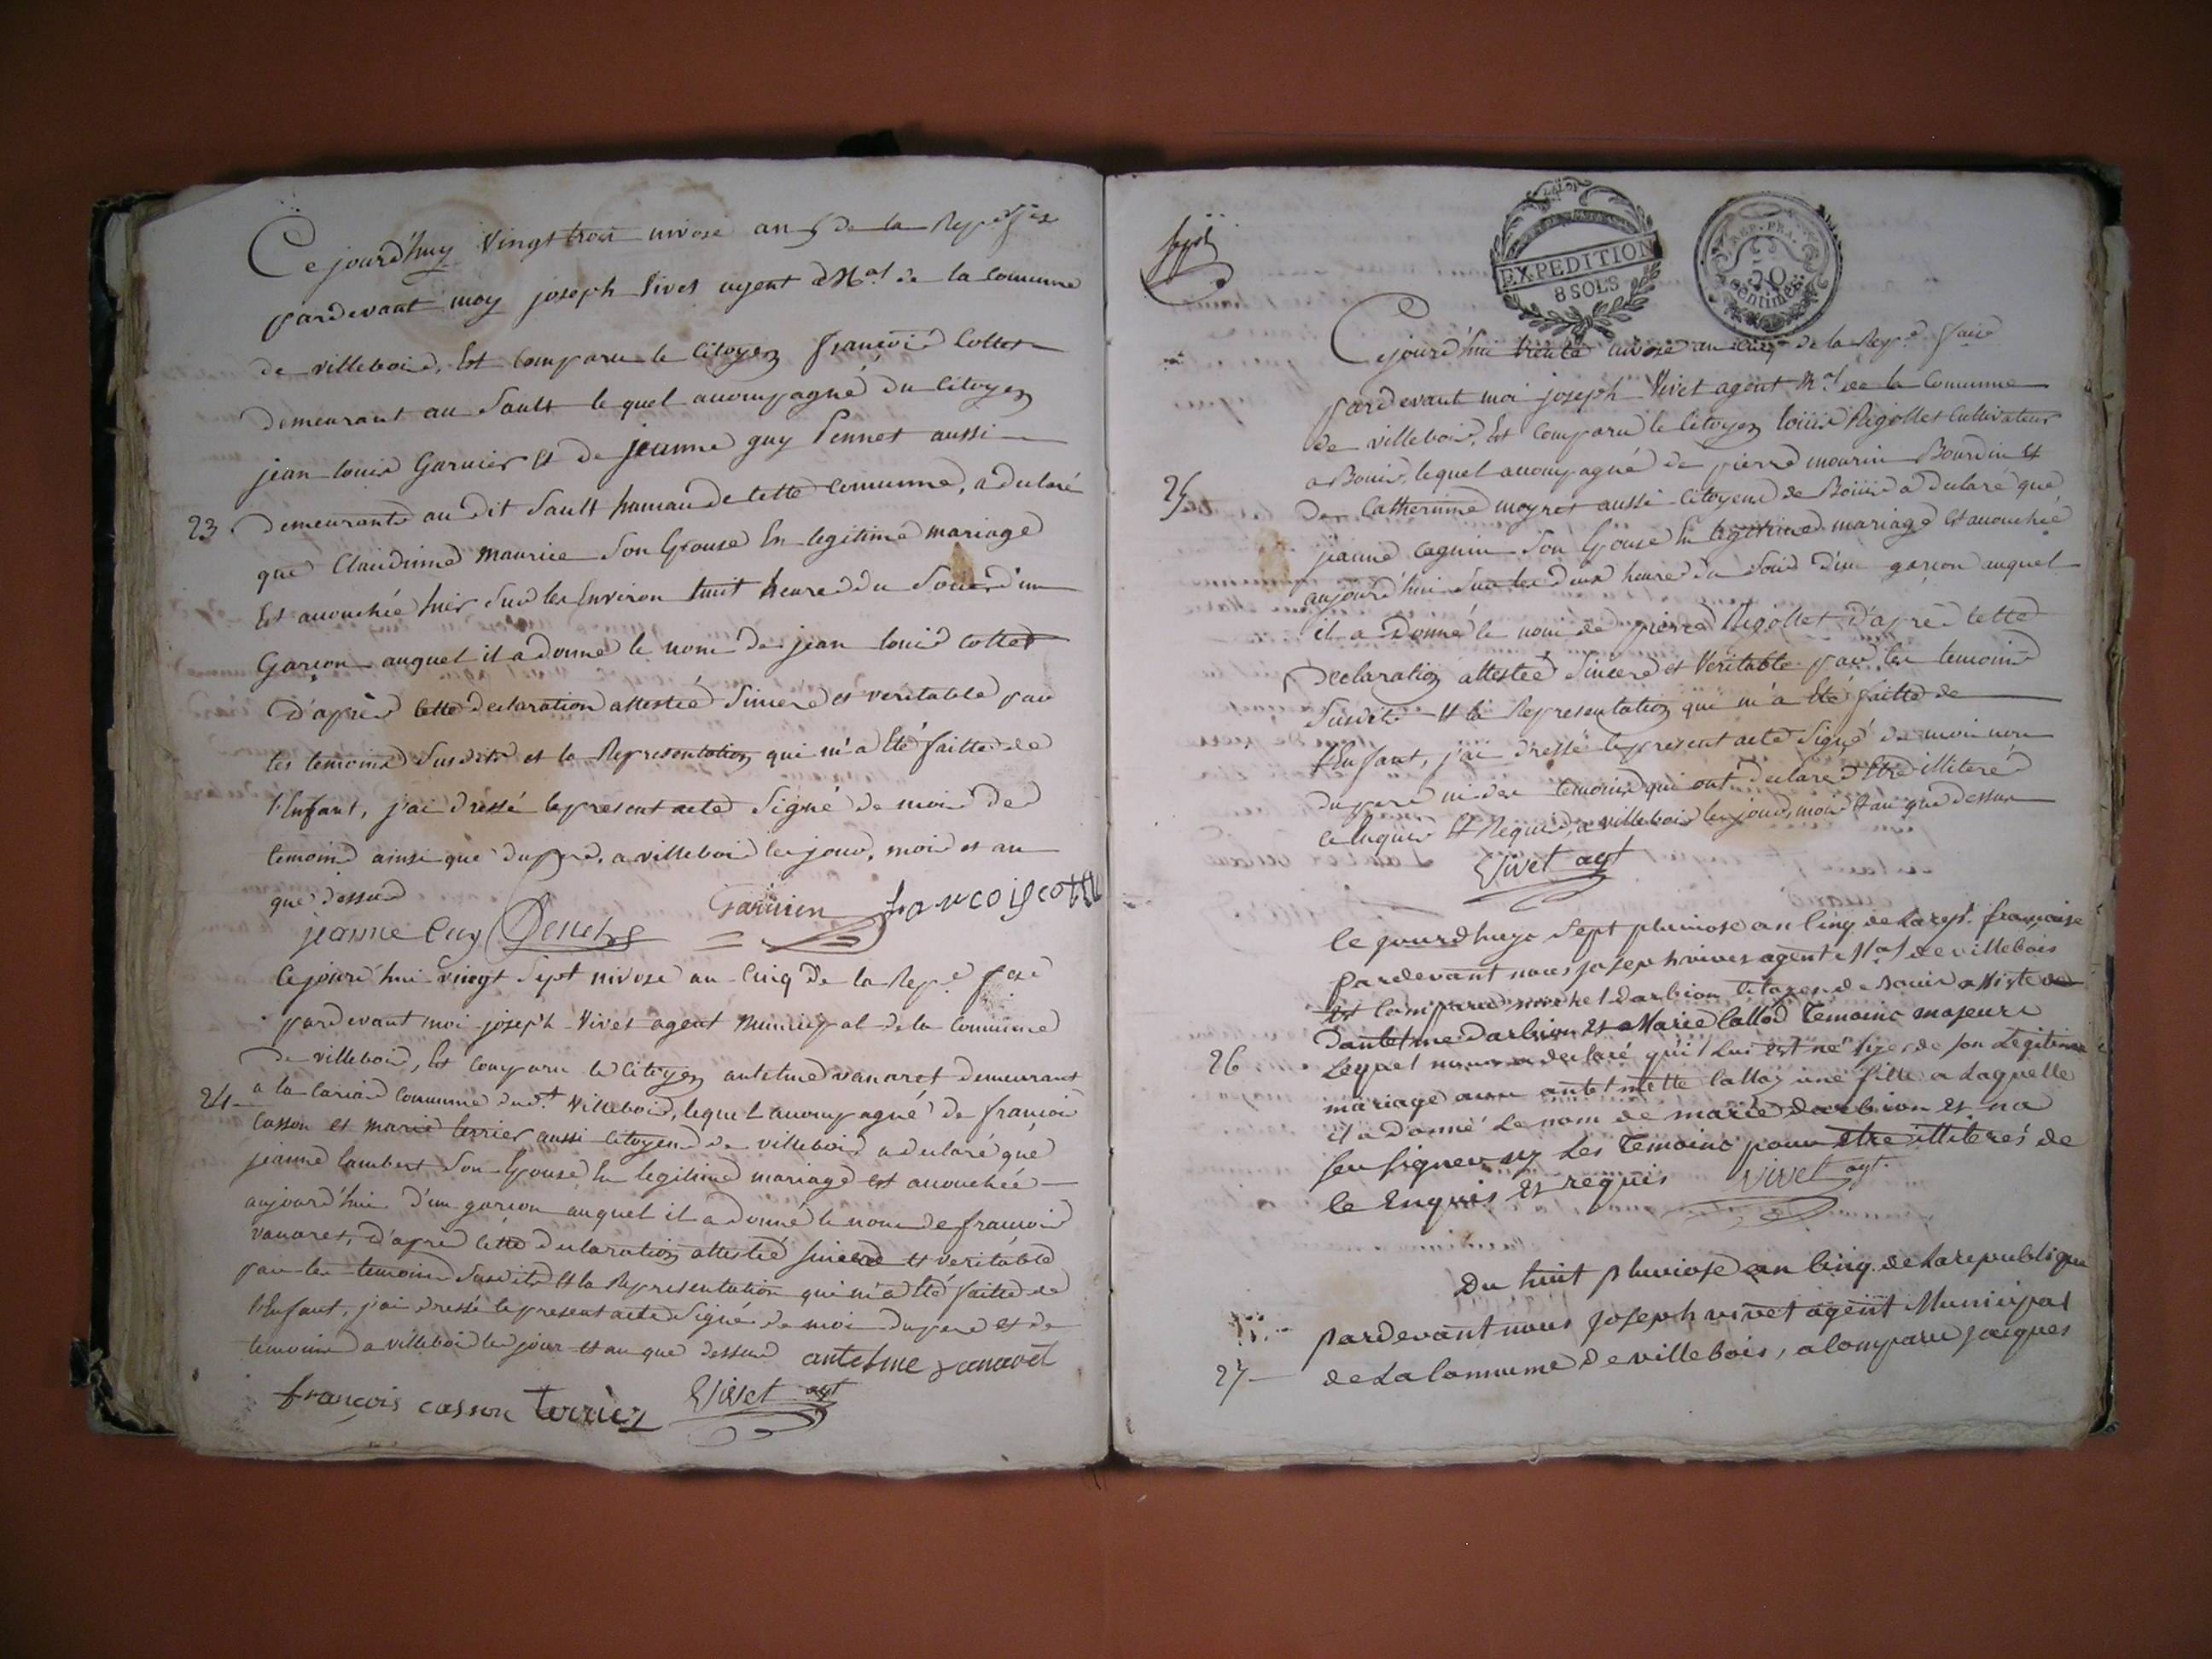 Cejourd'huy Vingt trois nivose an 5 de la Rep.
pardevant moy joseph Vivet agent M.al de la Commune
de villebois, Est Comparu le Citoyen françois Cottet
demeurant au Sault lequel accompagné du Citoyen
jean louis Garnier Et de jeanne guy Pennet aussi
23. demeurants au dit Sault hamau de cette Commune, a declaré
que Claudinne Maurice Son Epouse En legitime mariage
Est accouchée hier Sur les Environ huit heures du Soir d'un
Garçon auquel il a donné le nom de jean louis Cottet
D'après cette declaration attestée Sincere et veritable par
les temoins Susdits et la Representation qui m'a Eté faitte de
l'Enfant, j'ai dressé le present acte Signé de moi des
temoins ainsi que du pere, a villebois les jour, mois et an
que dessus
jeanne Guy Garnier francois cottet
Cejourd'hui vingt Sept nivose an Cinq de la Rep.e
pardevant moi joseph Vivet agent Municipal de la Commune
de villebois, Est Comparu le Citoyen antelme vanaret demeurant
24 a la Commune dud.t Villebois, lequel accompagné de françois
Casson et marie terrier aussi Citoyens de villebois a declaré que
jeanne lambert Son Epouse En legitime mariage est accouchée
aujourd'hui d'un garçon auquel il a donné le nom de francois
vanaret, d'après cette declaration attestée Sincere et veritable
par les temoins Susdits Et la Representation qui m'a Eté faitte de
l'Enfant, j'ai dressé le present acte Signé de moi du pere et de
temoins a villebois les jour et an que dessus antelme vanaret
françois casson terrier Vivet agt
EXPEDITION
8 SOLS
REP. FRA.
50
centimes
Cejourd'hui trente nivose an cinq de la Rep.e
pardevant moi joseph Vivet agent M.al de la Commune
de villebois, Est Comparu le Citoyen louis Rigollet Cultivateur
a Bouis, lequel accompagné de pierre mourin Bourdin Et
25 de Catherinne moyret aussi Citoyens de Bouis a declaré que
jeanne cagnin Son Epouse En legitime mariage Est accouchée
aujourd'hui Sur les deux heures du Soir d'un garçon auquel
il a donné le nom de pierre Rigollet d'après cette
declaration attestée Sincere et Veritable par les temoins
Susdits Et la Representation qui m'a Eté faitte de
l'Enfant, j'ai dressé le present acte Signé de moi non
du pere ni des temoins qui ont declaré Etre illiteré
de ce Enquis Et Requis, a villebois les jour, mois Et an que dessus
Vivet agt
Ce jourdhuye Sept pluviose an Cinq de la rep.e française
pardevant nous joseph vivet agent M.al de villebois
Est Comparu michel darbion Citoyen de Bouis assisté de
Dantelme Darbion Et Marie Callod Temoins majeurs
26 Lequel nous a declaré qu'il Lui est né hier de son Légitime
mariage avec antelmette Callod une fille a Laquelle
il a Donné Le nom de marie darbion Et na
sceu signer ny Les Temoins pour etre illiterés de
ce Enquis Et requis Vivet agt.
Du huit pluviose an Cinq de la republique
pardevant nous joseph vivet agent Municipal
27 de La Commune de villebois, a Comparu jacques